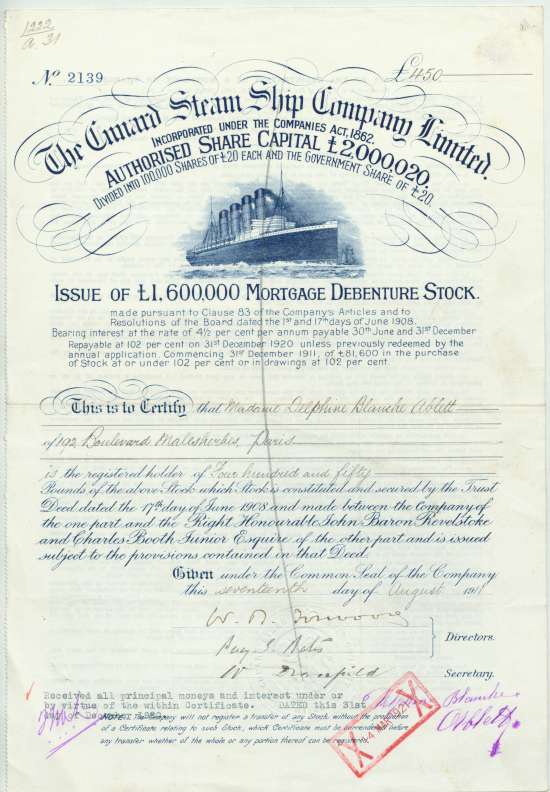 1222
a. 31
No. 2139
£450
The Cunard Steam Ship Company Limited.
INCORPORATED UNDER THE COMPANIES ACT, 1862.
AUTHORISED SHARE CAPITAL £2,000,020.
DIVIDED INTO 100,000 SHARES OF £20 EACH AND THE GOVERNMENT SHARE OF £20.
ISSUE OF £1,600,000 MORTGAGE DEBENTURE STOCK.
made pursuant to Clause 83 of the Company's Articles and to
Resolutions of the Board dated the 1st and 17th days of June 1908.
Bearing interest at the rate of 4½ per cent per annum payable 30th June and 31st December
Repayable at 102 per cent on 31st December 1920 unless previously redeemed by the
annual application. Commencing 31st December 1911, of £81,600 in the purchase
of Stock at or under 102 per cent or in drawings at 102 per cent.
This is to Certify that Madame Delphine Blanche Ablett
of 192 Boulevard Malesherbes, Paris
is the registered holder of Four hundred and fifty
Pounds of the above Stock which Stock is constituted and secured by the Trust
Deed dated the 17th day of June 1908 and made between the Company of
the one part and the Right Honourable John Baron Revelstoke
and Charles Booth Junior Esquire of the other part and is issued
subject to the provisions contained in that Deed.
Given under the Common Seal of the Company
this seventeenth day of August 191
Directors.
Secretary.
Received all principal moneys and interest under or
by virtue of the within Certificate. DATED this 31st
day of December
Blanche
Ablett
NOTE. The Company will not register a transfer of any Stock without the production
of a Certificate relating to such Stock, which Certificate must be surrendered before
any transfer whether of the whole or any portion thereof can be registered.
X 14 MAR 1921 X